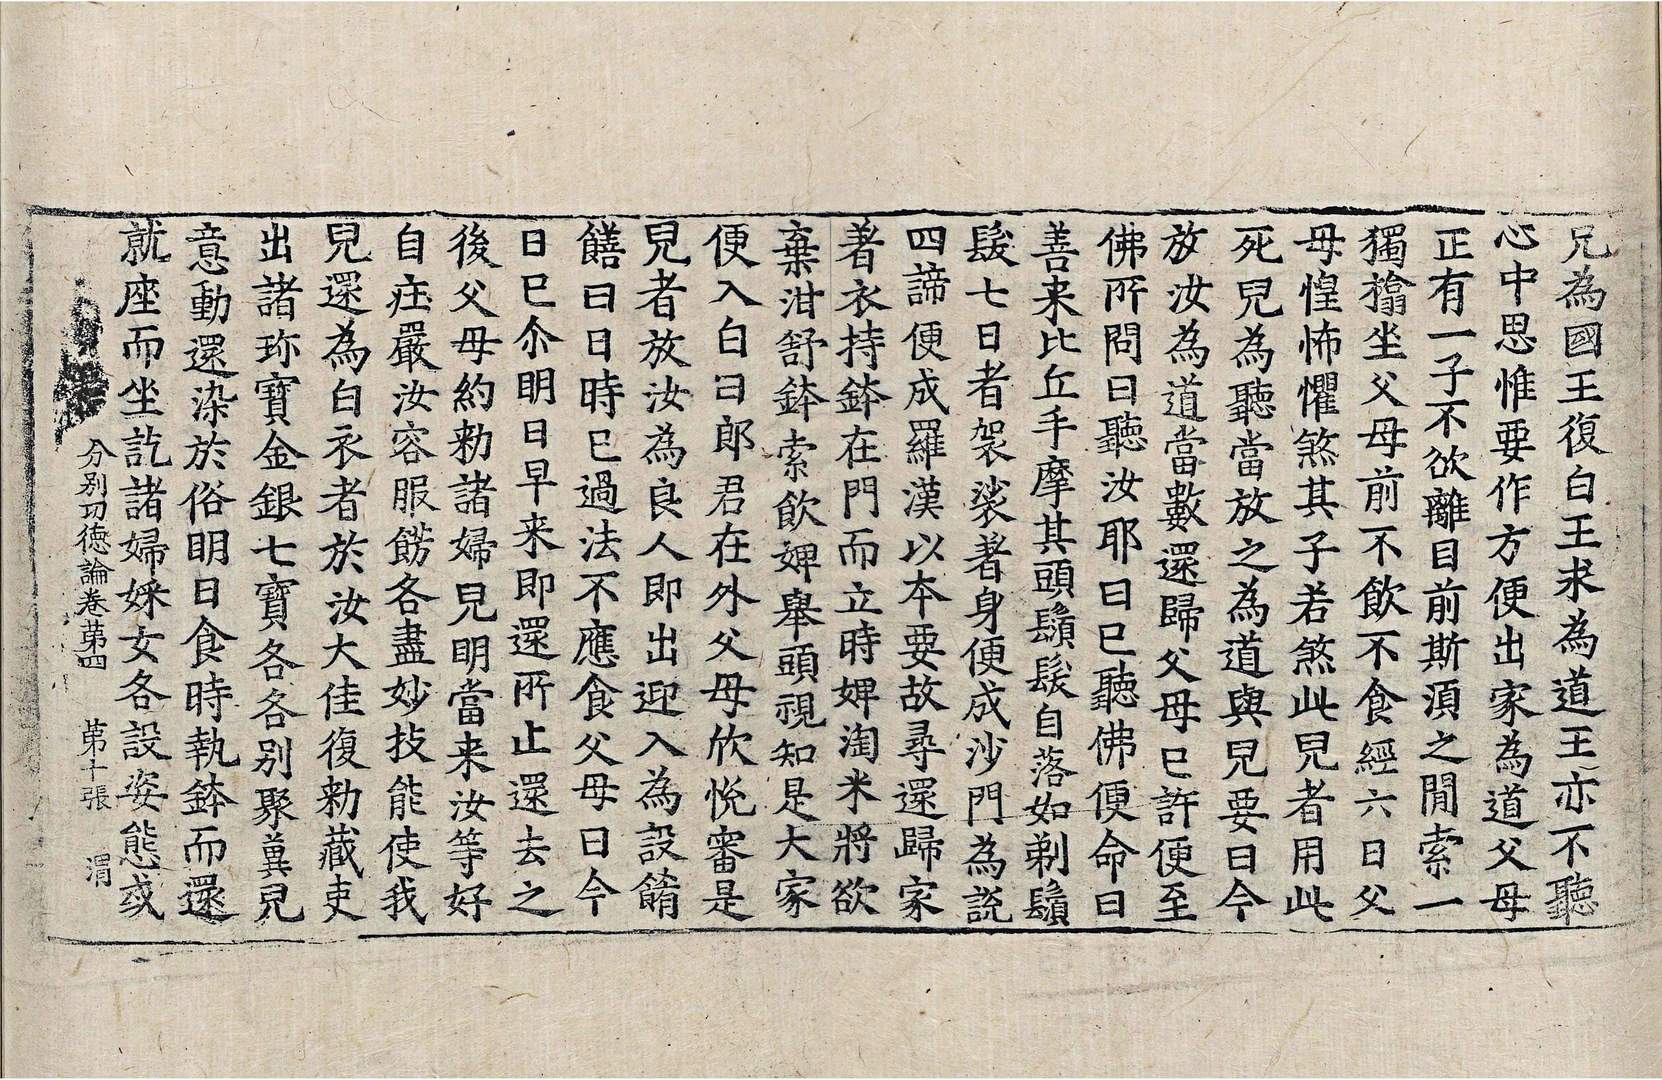 兄為國王復白王求為道王亦不聽
心中思惟要作方便出家為道父母
正有一子不欲離目前斯湏之閒索一
獨㯓坐父母前不飲不食經六日父
母惶怖懼煞其子若煞此兒者用此
死兒為聽當放之為道與兒要曰今
放汝為道當數還歸父母已許便至
佛所問曰聽汝耶曰已聽佛便命曰
善来比丘手摩其頭鬚髮自落如剃鬚
髮七日者袈裟著身便成沙門為説
四諦便成羅漢以本要故尋還歸家
著衣持鉢在門而立時婢淘米將欲
棄泔舒鉢索飲婢舉頭視知是大家
便入白曰郎君在外父母欣悅審是
兒者放汝為良人即出迎入為設餚
饍曰日時已過法不應食父母曰今
日已尒明日早来即還所止還去之
後父母約勑諸婦兒明當来汝等好
自㽵嚴汝容服餝各盡妙技能使我
兒還為白衣者於汝大佳復勑藏吏
出諸珎寶金銀七寶各各別聚冀兒
意動還染於俗明日食時執鉢而還
就座而坐訖諸婦婇女各設姿態或
分別功德論卷苐四　苐十張　渭